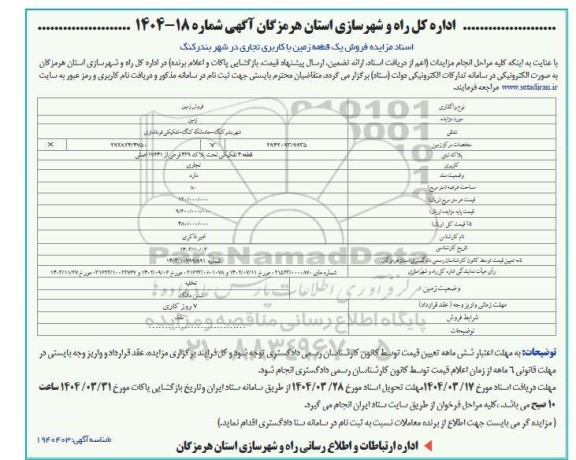 اداره کل راه و شهرسازی استان هرمزگان آگهی شماره ۱۸-۱۴۰۴
اسناد مزایده فروش یک قطعه زمین با کاربری تجاری در شهر بندرکنگ
با عنایت به اینکه کلیه مراحل انجام مزایدات (اعم از دریافت اسناد، ارائه تضمین، ارسال پیشنهاد قیمت، بازگشایی پاکات و اعلام برنده) در اداره کل و شهرسازی استان هرمزگان
به صورت الکترونیکی در سامانه تدارکات الکترونیکی دولت (ستاد) برگزار می گردد. متقاضیان محترم بایستی جهت ثبت نام در سامانه مذکور و دریافت نام کاربری و رمز عبور به سایت
www.setadiran.ir مراجعه فرمایند.
نوع واگذاری فروش زمین
مورد مزایده زمین
نشانی شهر بندر کنگ
مختصات مرکز زمین ۲۹۴۲۰۹۳/۹۹۳۵ Y ۲۹۲۸۲۴/۴۷۵۰ X
پلاک ثبتی قطعه ۴ تفکیکی تحت پلاک ۴۲۹ فرعی از ۱۷۶۴۱ اصلی
کاربری تجاری
وضعیت سند دارد
مساحت عرصه (متر مربع) ۸۰
قیمت هر متر مربع (ریال) ۱۲۰/۰۰۰/۰۰۰
قیمت پایه مزایده (ریال) ۹/۶۰۰/۰۰۰/۰۰۰
۵٪ قیمت کل (ریال) ۴۸۰/۰۰۰/۰۰۰
نام کارشناس امیر ذاکری
تاریخ کارشناسی
نامه تعیین قیمت توسط کانون کارشناسان رسمی دادگستری استان هرمزگان
رأی هیأت نمایندگی اداره کل راه و شهرسازی
وضعیت زمین تخلیه
مهلت زمانی واریز وجه (عقد قرارداد) ۷ روز کاری
شرایط فروش نقد
توضیحات
توضیحات: به مهلت اعتبار شش ماهه تعیین قیمت توسط کانون کارشناسان رسمی دادگستری توجه شود و کل فرایند برگزاری مزایده، عقد قرارداد و واریز وجه بایستی در
مهلت قانونی ۶ ماهه از زمان اعلام قیمت توسط کانون کارشناسان رسمی دادگستری انجام شود.
مهلت دریافت اسناد مورخ ۱۴۰۴/۰۳/۱۷ مهلت تحویل اسناد مورخ ۱۴۰۴/۰۳/۲۸ از طریق سامانه ستاد ایران و تاریخ بازگشایی پاکات مورخ ۱۴۰۴/۰۳/۳۱ ساعت
۱۰ صبح می باشد. ،کلیه مراحل فرخوان از طریق سایت ستاد ایران انجام می گیرد.
( مزایده گر می بایست جهت اطلاع از برنده معاملات نسبت به ثبت نام در سامانه سنا دادگستری اقدام نماید.)
شناسه آگهی: ۱۹۴۰۴۰۳
اداره ارتباطات و اطلاع رسانی راه و شهرسازی استان هرمزگان
ParsNamadData
پایگاه اطلاع رسانی مناقصه و مزایده
۰۲۱-۸۸۳۴۹۶۷۰-۵